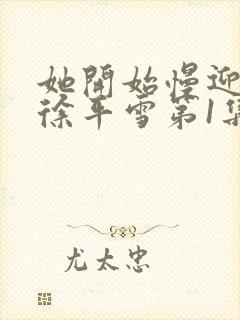 她開始慢迎
徐平雪第1集
尤太忠